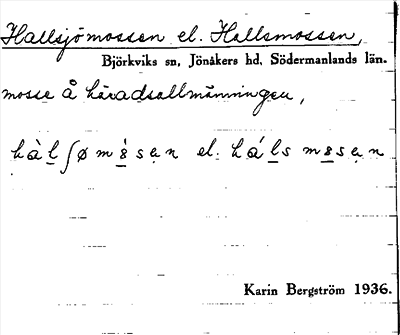 Hallsjömossen el. Hallsmossen,
Björkviks sn, Jönåkers hd, Södermanlands län.
mosse å häradsallmänningen,
hàlʃøm8̀sen el. háls m8sen
Karin Bergström 1936.